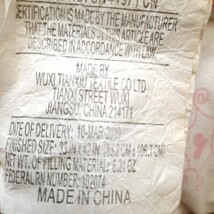 CERTIFICATION IS MADE BY THE MANUFACTURER
THAT THE MATERIALS IN THIS ARTICLE ARE
DESCRIBED IN ACCORDANCE WITH LAW.
MADE BY
WUXI TIANXIU TEXTILE CO LTD
TIANXI STREET WUXI,
JIANGSU, CHINA 214171
DATE OF DELIVERY: 10-MAR-
FINISHED SIZE: 33 IN X 42 IN
NET WT OF FILLING MATERIAL:
FEDERAL RN NUMBER:
MADE IN CHINA